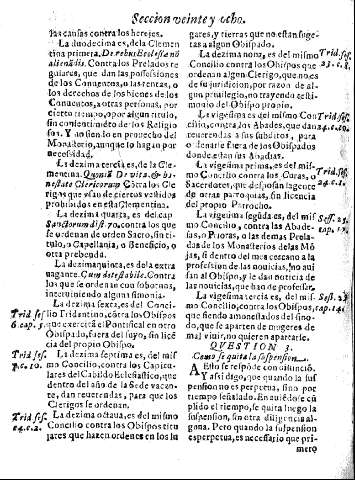 Seccion veinte y ocho.
las causas contra los herejes.
La duodecima es, dela Clemen
tina primera. De rebus Ecclesiæ nō
alienādis. Contra los Prelados re
gulares, que dan las possesiones
de los Conuentos, las rentas, o
los derechos de los bienes de los
Conuentos, a otras personas, por
cierto tiempo, o por algun titulo,
sin consentimiēto de los Religio
sos. Y no siendo en prouecho del
Monasterio, aunque lo hagan por
necessidad.
La dezima tercia es, de la Cle
mentina. Quoniā De vita, & ho
nestate Clericorum. Cōtra los Cle
rigos que vsan de ciertos vestidos
prohibidos en esta Clementina.
La dezima quarta, es del cap
Sanctorum dist. 70. contra los que
se ordenan de orden Sacro, sin ti-
tulo, o Capellania, o Beneficio, o
otra prebenda.
La dezimaquinta, es de la extra
uagante. Cum detestabile. Contra
los que se ordenan con sobornos,
interuiniendo alguna simonia.
La dezima sexta, es del Conci-
Trid. ses. 6. cap. 5.
lio Tridentino, contra los Obispos
que exercitā el Pontifical en otro
Obispado, fuera del suyo, sin licē
cia del propio Obispo.
Trid. ses. 7. c. 10.
La dezima septima es, del mis
mo Concilio, contra los Capitu-
lares del Cabildo Eclesiastico, que
dentro del año de la Sede vacan-
te, dan reuerendas, para que los
Clerigos se ordenen.
Trid. ses. 14. c. 2.
La dezima octaua, es del mismo
Concilio contra los Obispos titu
lares que hazen ordenes en los lu
gares, y tierras que no estan suge-
tas a algun Obispado.
La dezima nona, es del mismo
Trid. ses. 23. c. 8.
Concilio, contra los Obispos que
ordenan algun Clerigo, que no es
de su juridicion, por razon de al-
gun priuilegio, no trayendo testi
monio del Obispo propio.
La vigesima es del mismo Con
Trid. ses. 24. c. 20.
cilio, contra los Abades, que dan
reuerendas a sus subditos, para
ordenarse
donde fuera de los Obispados
La vigesima prima, es del mis-
Trid. ses. 24. c. 1.
mo Concilio, contra los Curas, o
Sacerdotes, que desposan la gente
de otras parroquias, sin licencia
del propio Parroco.
La vigesima segūda es, del mis
Sess. 25. cap. 17.
mo Concilio, contra las Abade-
sas, o Prioras, o las demas Prela-
das de los Monasterios de las Mō
jas, si dentro del mes cescano a la
profession de las nouicias, no aui
san al Obispo, y le dan noticia de
las nouicias, que han de professar.
La vigesima tercia es, del mis-
Sess. 24. cap. 14.
mo Concilio, contra los Obispos,
que siendo amonestados del Syno
do, que se aparten de mugeres de
mal viuir, no quieren apartarse.
QVESTION 3.
Como se quita la suspension.
A Esto se respōde con distinciō.
Y assi digo, que quando la sus
pension no es perpetua, sino por
tiempo señalado. En auiēdose cū
plido el tiempo, se quita luego la
suspension, sin otra diligencia al-
guna. Pero quando la suspension
es perpetua, es necessario que pri-
mero